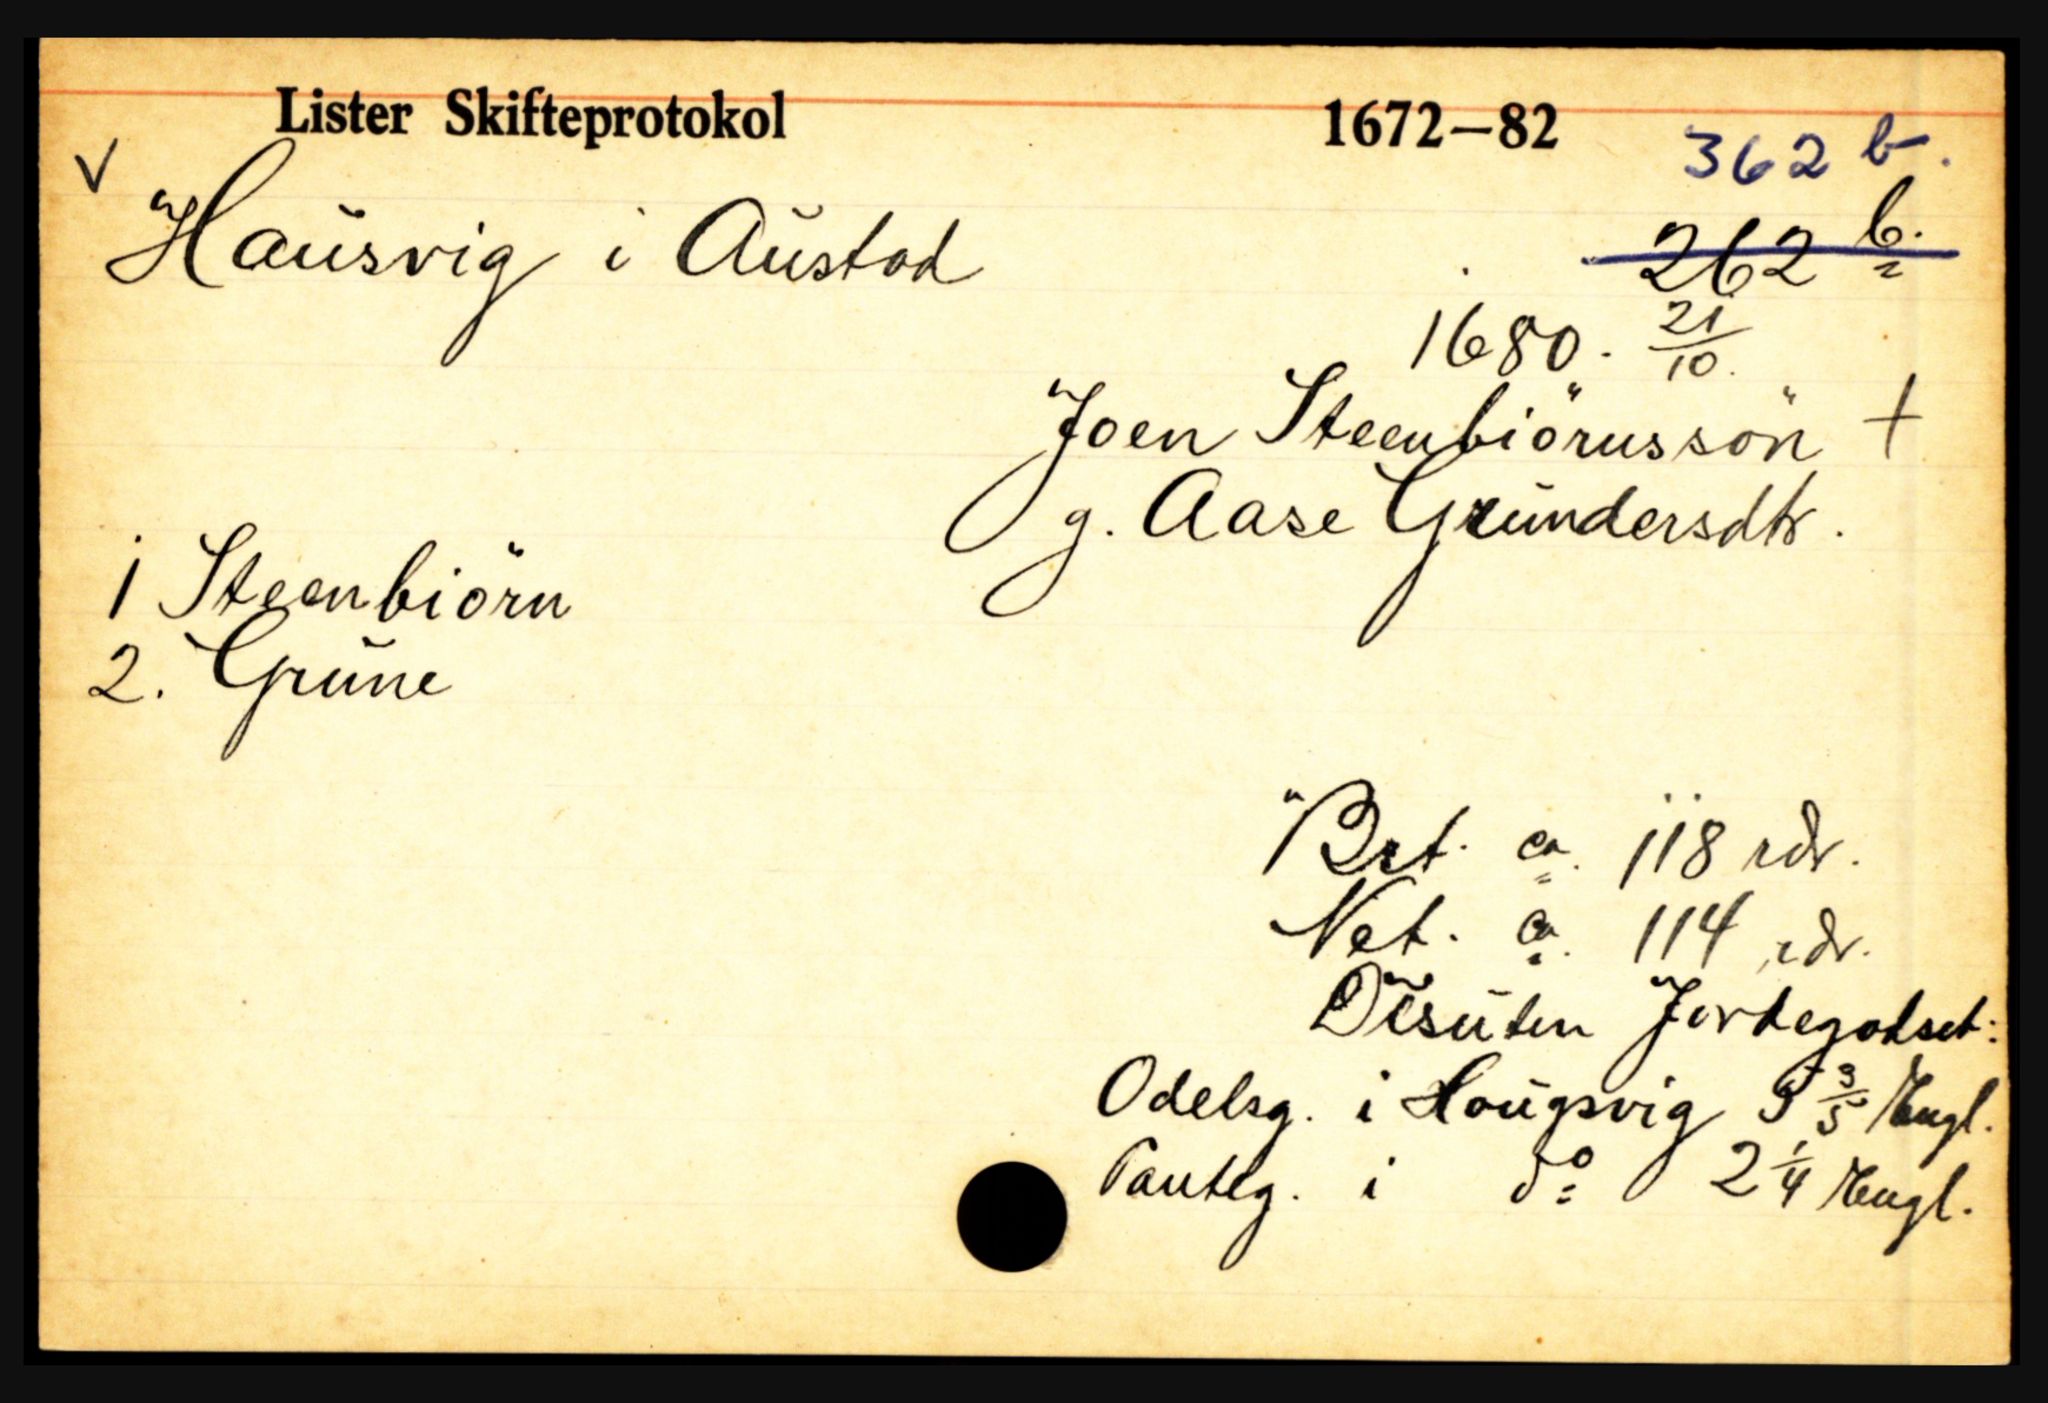 Lister Skifteprotokol 1672–82
362 b.
V Hausvig i Austad
262 b.
1680. 21/10.
Joen Steenbiörnssön +
g. Aase Grundersdtr.
1 Steenbiörn
2. Grune
Brt. ca. 118 rdr.
Net. ca. 114 rdr.
Desuten Jordegodset:
Odelsg. i Hougsvig 3 3/5 Engl.
Panteg. i do 2 1/4 Engl.